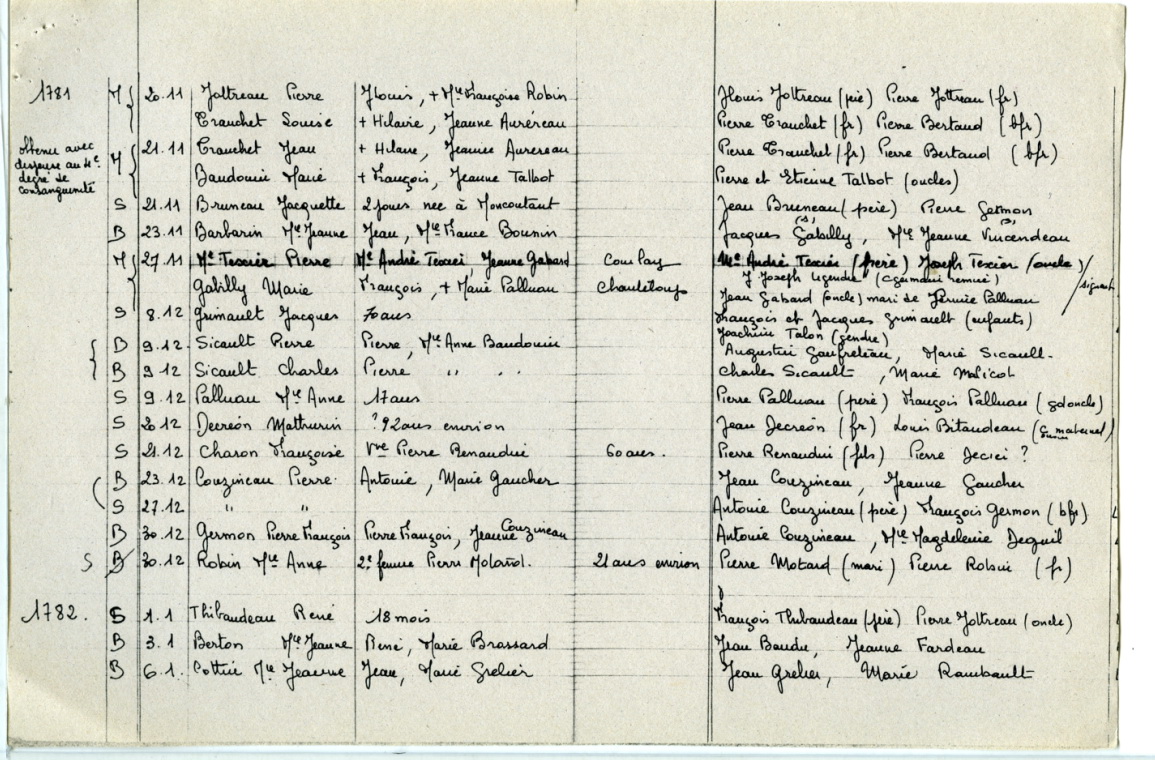 1781 M 20.11 Joltreau Pierre Louis, + Mie Françoise Robin Louis Joltreau (père) Pierre Joltreau (fr)
Trauchet Louise + Hilaire, Jeanne Auréreau Pierre Trauchet (fr) Pierre Bertaud (bfr)
obtenu avec dispense au 4e degré de consanguinité
M 21.11 Trauchet Jean + Hilaire, Jeanne Aurereau Pierre Trauchet (fr) Pierre Bertaud (bfr)
Baudouin Marie + François, Jeanne Talbot Pierre et Etienne Talbot (oncles)
S 21.11 Bruneau Jacquette 2 jours nee à Moncoutant Jean Bruneau (père) Pierre Germon
B 23.11 Barbarin Mie Jeanne Jean, Mie France Boumin Jacques Gabilly (s), Mie Jeanne Vincendeau (s)
M 27.11 Me Texier Pierre Me André Texier, Jeanne Gabard Courlay Me André Texier (frère) Joseph Texier (oncle)
Gabilly Marie François, + Marie Palluau Chanteloup Joseph Legendre (cgermain)
Jean Gabard (oncle) mari de Palluau / signent
S 8.12 Grimault Jacques 70 ans François et Jacques Grimault (enfants)
Joachim Talon (gendre)
B 9.12. Sicault Pierre Pierre, Mie Anne Baudouin Augustin Gaufreteau, Marie Sicault.
B 9 12 Sicault Charles Pierre " " Charles Sicault, Marie Malicot
S 9.12 Palluau Mie Anne 17 ans Pierre Palluau (père) François Palluau (gd oncle)
S 20 12 Decréon Mathurin ? 92 ans environ Jean Decréon (fr) Louis Bitaudeau (maternel)
S 21.12 Charon Françoise Vve Pierre Renaudin 60 ans. Pierre Renaudin (fils) Pierre Deciei ?
B 23.12 Couzineau Pierre Antoine, Marie Gaucher Jean Couzineau, Jeanne Gaucher
S 27.12 " " Antoine Couzineau (père) François Germon (bfr)
B 30.12 Germon Pierre François Pierre François, Jeanne Couzineau Antoine Couzineau, Mie Magdeleine Deguil
S B 30.12 Robin Mie Anne 2e femme Pierre Motard. 21 ans environ Pierre Motard (mari) Pierre Robin (fr)
1782. S 1.1 Thibaudeau René 18 mois François Thibaudeau (père) Pierre Joltreau (oncle)
B 3.1 Berton Mie Jeanne René, Marie Brossard Jean Baudu, Jeanne Fardeau
B 6.1. Cottin Mie Jeanne Jean, Marie Grelier Jean Grelier, Marie Rambault